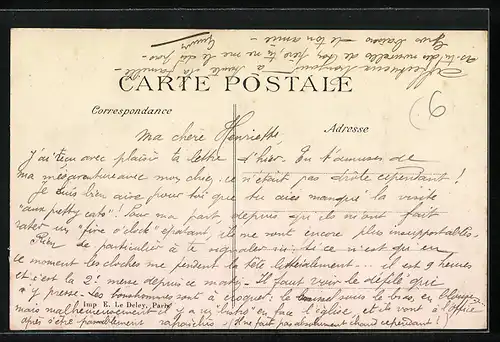 CARTE POSTALE
Correspondance
Adresse
9
Ma chère Henriette
J'ai reçu avec plaisir ta lettre d'hier. Tu t'amuses de
ma mésaventure avec moy chez, ce n'était pas drôle cependant !
Je suis bien aise pour toi que tu aies manqué la visite
"aux petty cats". Pour ma part, depuis qu'ils m'ont fait
rater un "five o'clock" épatant, ils me sont encore plus insupportables.
Rien de particulier à te signaler ici, si ce n'est qu'en
ce moment les cloches me fendent la tête littéralement... il est 9 heures
et c'est la 2e messe depuis ce matin. Il faut voir le défilé que
s'y presse. Les bonshommes sont à croquer : le sous le bras, en blouse,
Imp E. Le Deley, Paris
mais malheureusement il y a un bistro en face l'église et ils vont à l'office
après s'être passablement rafraîchis (il ne fait pas absolument chaud cependant !)
Affectueux bonjour à toute ta famille.
As-tu des nouvelles de ton père, tu ne me le dis pas.
Gros baisers de ton amie